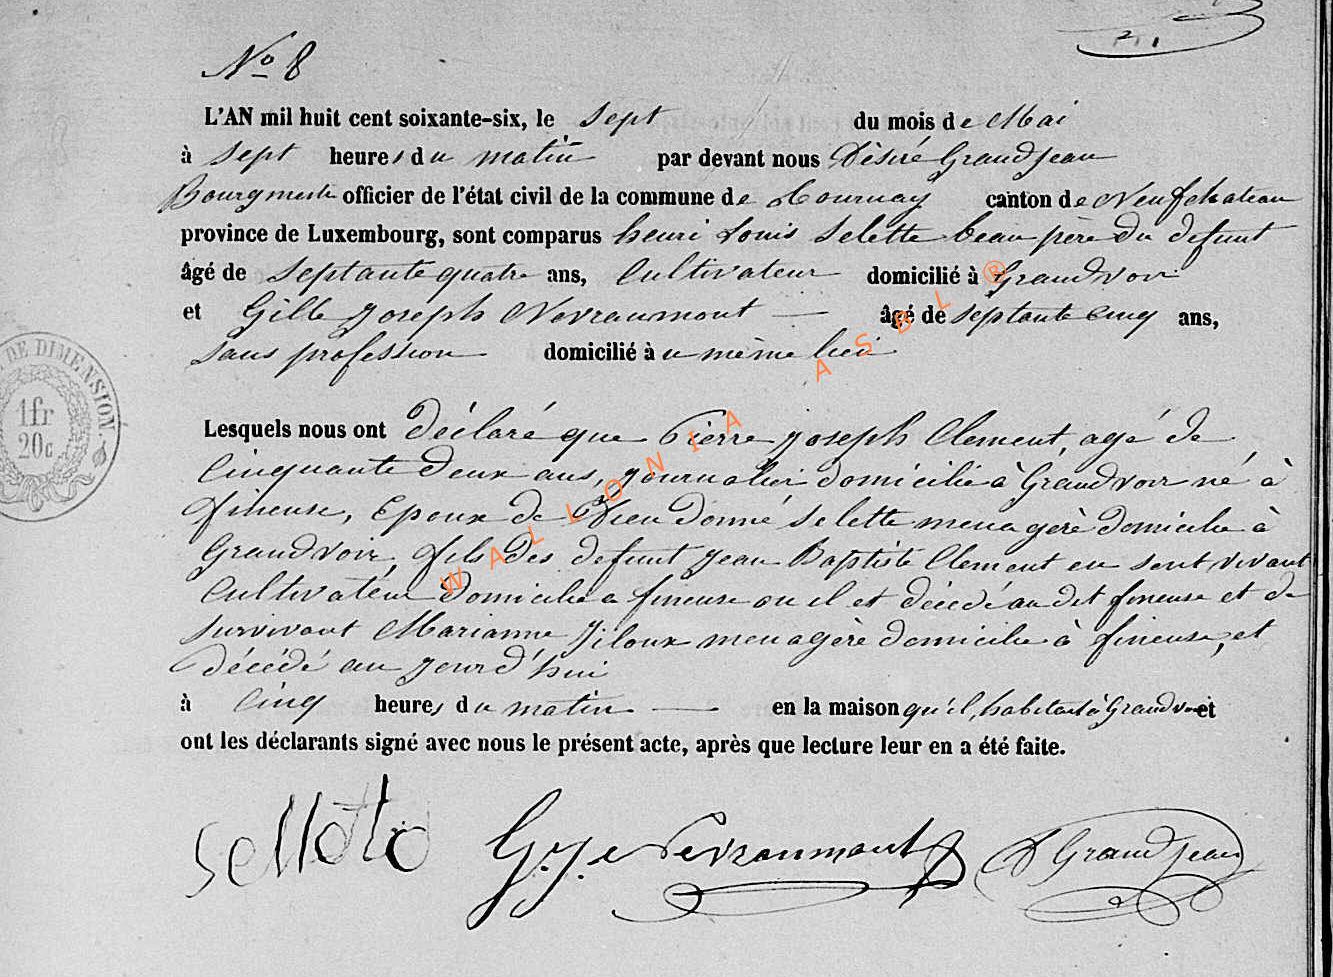 No 8
L'AN mil huit cent soixante-six, le sept du mois de Mai
à sept heures du matin par devant nous Désiré Grandjean
Bourgmestre officier de l'état civil de la commune de Tournay canton de Neufchateau
province de Luxembourg, sont comparus henri Louis Selette beau père du defunt
âgé de septante quatre ans, Cultivateur domicilié à Grandvoir
et Gille Joseph Nevraumont âgé de septante cinq ans,
sans profession domicilié à u même lieu
Lesquels nous ont déclaré que Pierre Joseph Clement, agé de
Cinquante deux ans, journalier domicilié à Grandvoir né à
fineuse, Epoux de Dieudonné Selette menagère domicilie à
Grandvoir, fils des defunt Jean Baptiste Clement en sont vivant
Cultivateur domicilie a fineuse ou il et décédé au dit fineuse et de
survivant Marianne Jiloux menagère domicilie à fineuse, et
décédé au jourd'hui
à Cinq heures du matin en la maison qu'il habitait à Grandvoir et
ont les déclarants signé avec nous le présent acte, après que lecture leur en a été faite.
Sellette G. J. Nevraumont D Grandjean
DE DIMENSION.
1fr
20c
WALLONIA ASBL ®